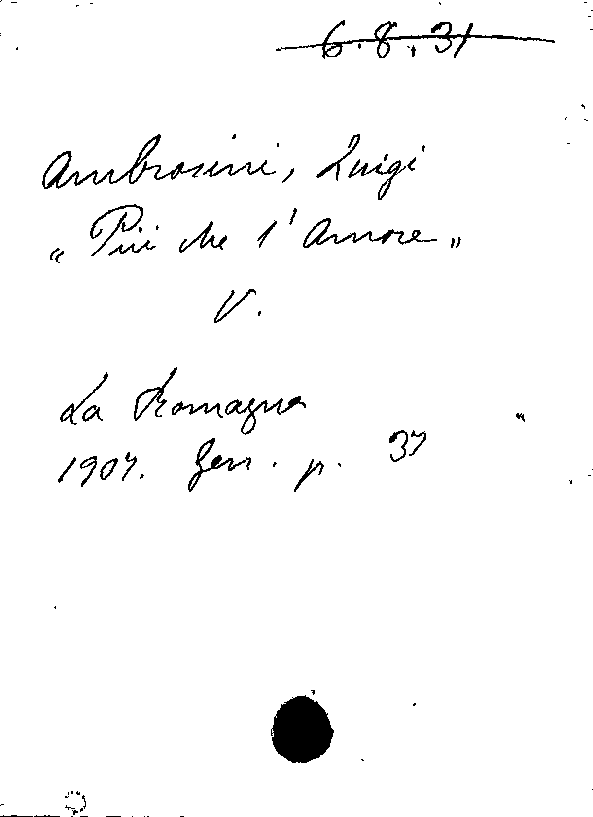 6.8.31
Ambrosini, Luigi
„Più che l'Amore„
V.
La Romagna
1907. Gen. p. 37